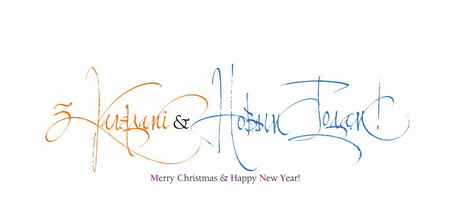 З Калядамі & Новым Годам!
Merry Christmas & Happy New Year!